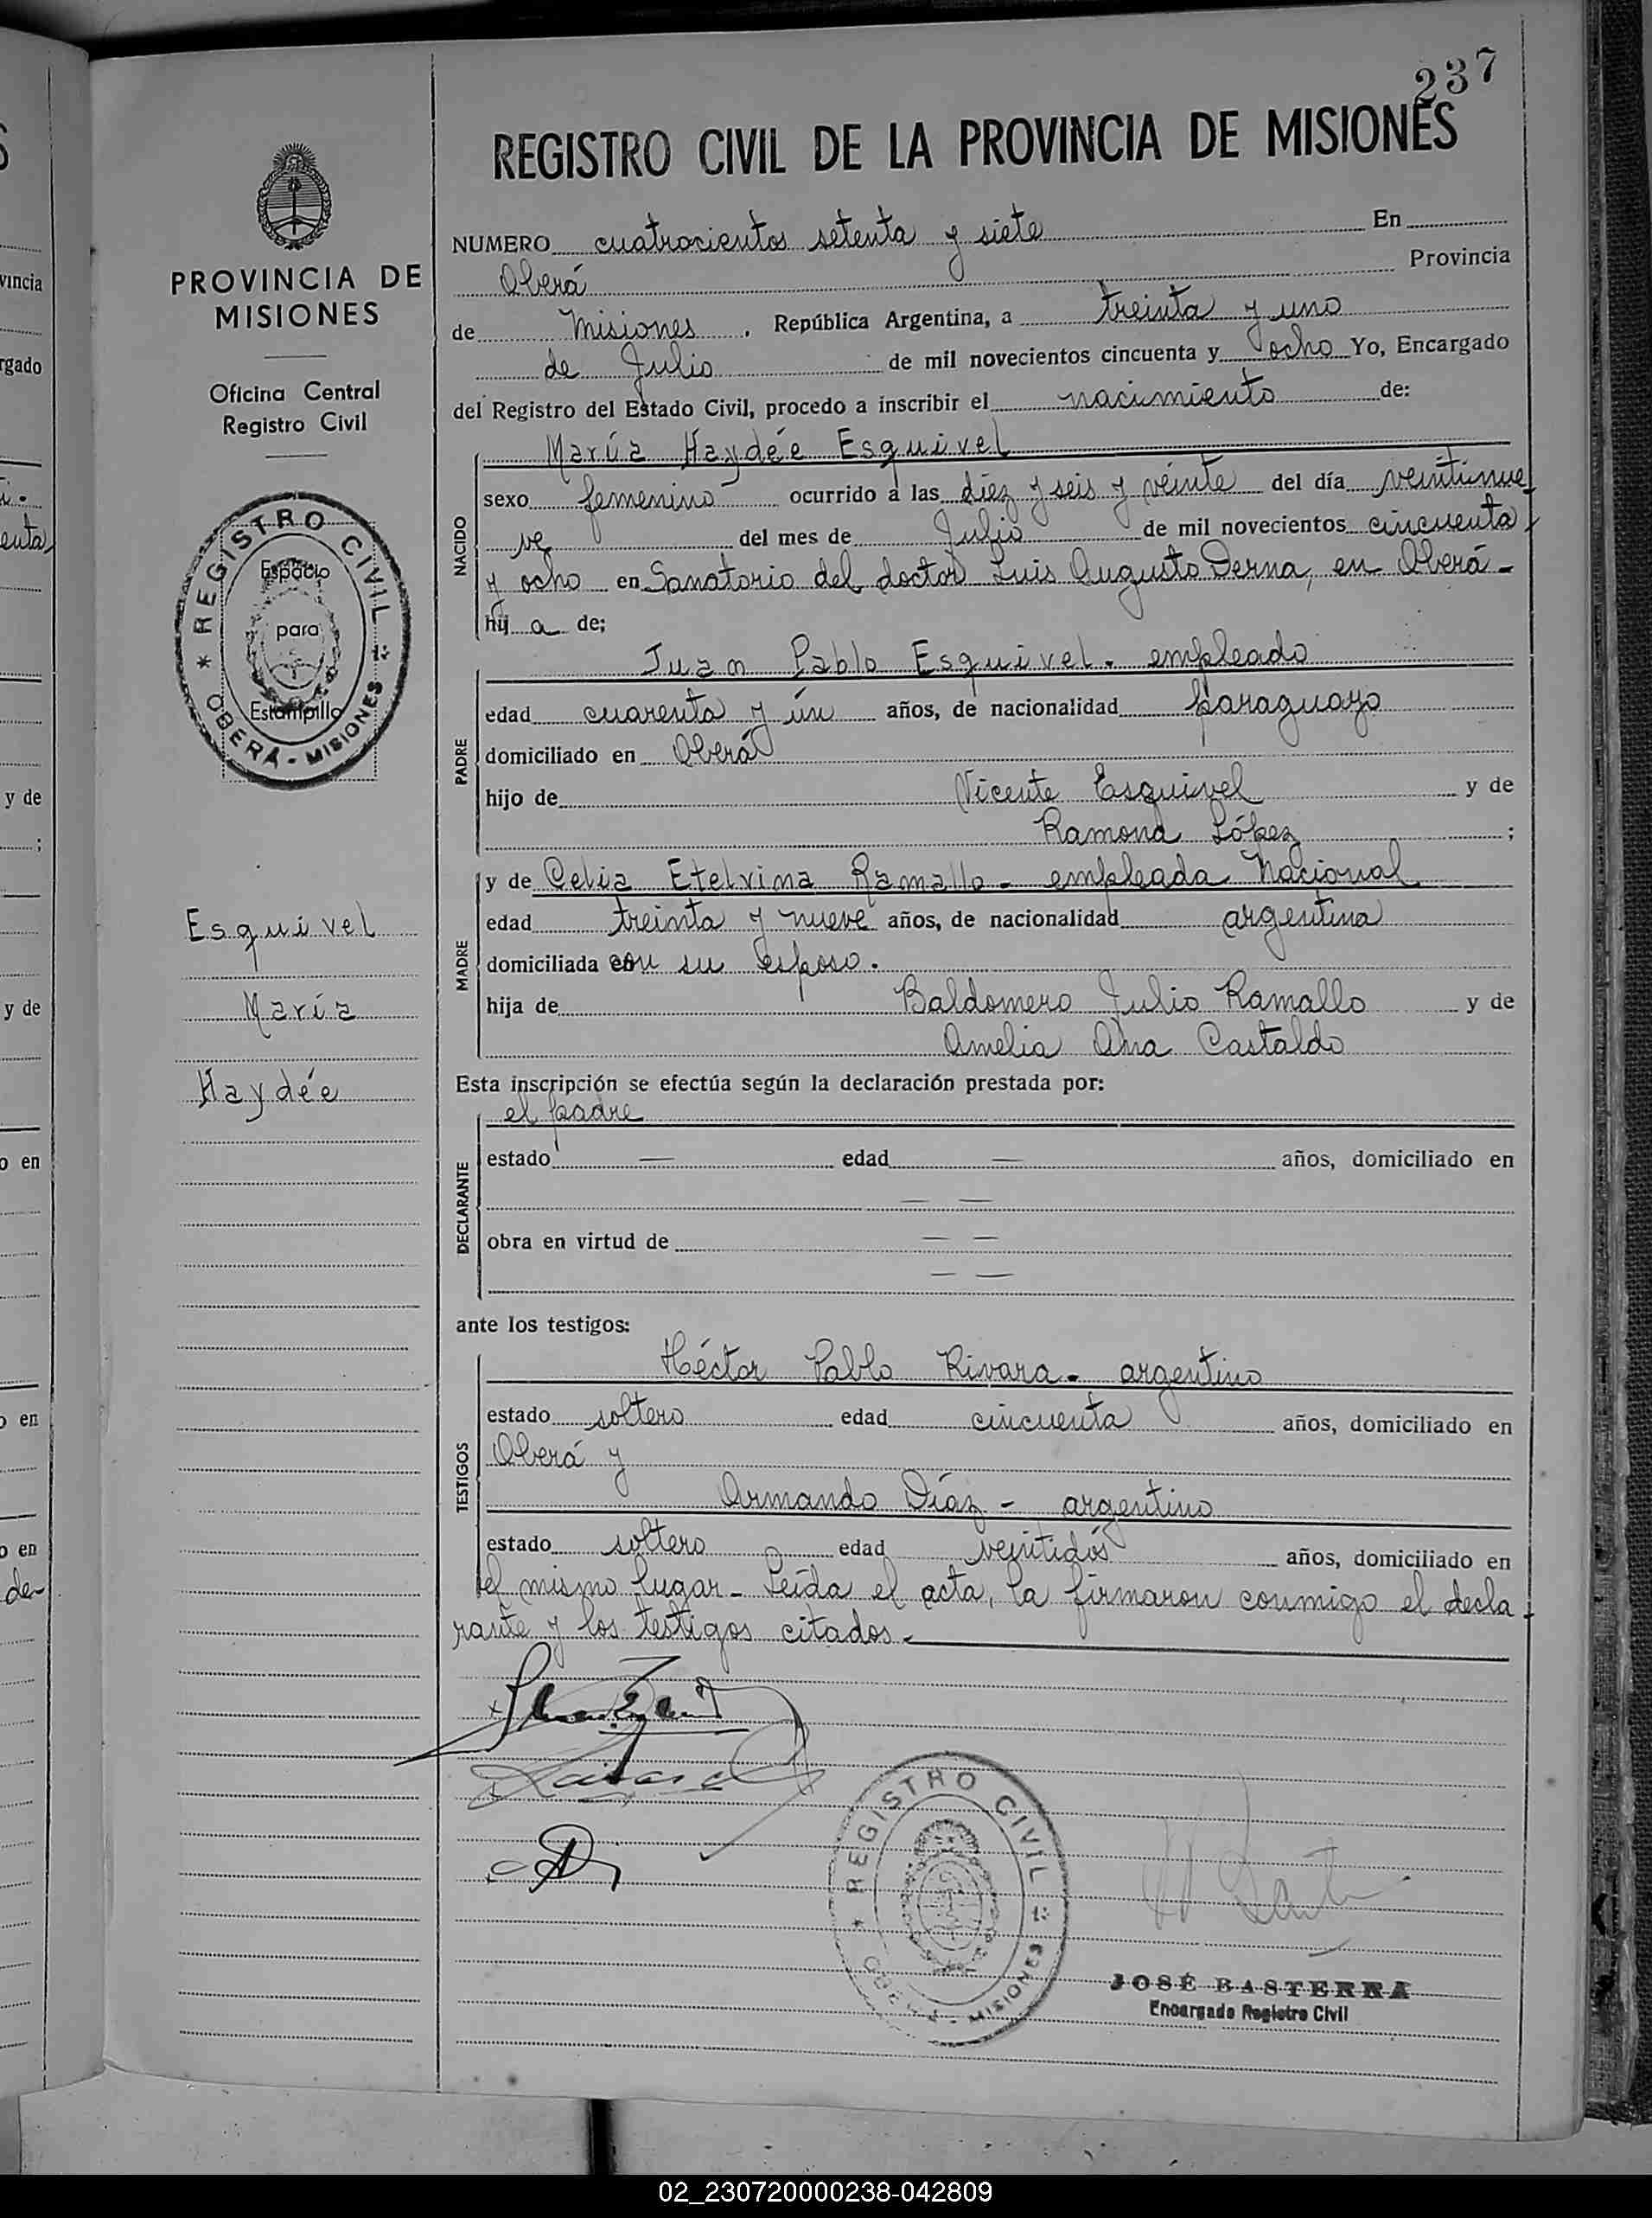 237
REGISTRO CIVIL DE LA PROVINCIA DE MISIONES
PROVINCIA DE
MISIONES
Oficina Central
Registro Civil
REGISTRO CIVIL
OBERÁ - MISIONES
Espacio
para
Estampilla
Esquivel
María
Haydée
NUMERO cuatrocientos setenta y siete En
Oberá Provincia
de Misiones, República Argentina, a treinta y uno
de Julio de mil novecientos cincuenta y ocho Yo, Encargado
del Registro del Estado Civil, procedo a inscribir el nacimiento de:
María Haydée Esquivel
NACIDO
sexo femenino ocurrido a las diez y seis y veinte del día veintinue
ve del mes de Julio de mil novecientos cincuenta
y ocho en Sanatorio del doctor Luis Augusto Derna, en Oberá -
hij a de;
PADRE
Juan Pablo Esquivel - empleado
edad cuarenta y ún años, de nacionalidad paraguayo
domiciliado en Oberá
hijo de Vicente Esquivel y de
Ramona López ;
MADRE
y de Celia Etelvina Ramallo - empleada Nacional
edad treinta y nueve años, de nacionalidad argentina
domiciliada con su esposo.
hija de Baldomero Julio Ramallo y de
Amelia Ana Castaldo
Esta inscripción se efectúa según la declaración prestada por:
DECLARANTE
el padre
estado — edad — años, domiciliado en
— —
obra en virtud de — —
— —
ante los testigos:
TESTIGOS
Héctor Pablo Rivara - argentino
estado soltero edad cincuenta años, domiciliado en
Oberá y
Armando Díaz - argentino
estado soltero edad veintidós años, domiciliado en
el mismo lugar - Leída el acta, la firmaron conmigo el decla
rante y los testigos citados -
REGISTRO CIVIL
OBERÁ - MISIONES
JOSÉ BASTERRA
Encargado Registro Civil
vincia
rgado
enta
y de
;
y de
o en
o en
o en
de-
02_230720000238-042809